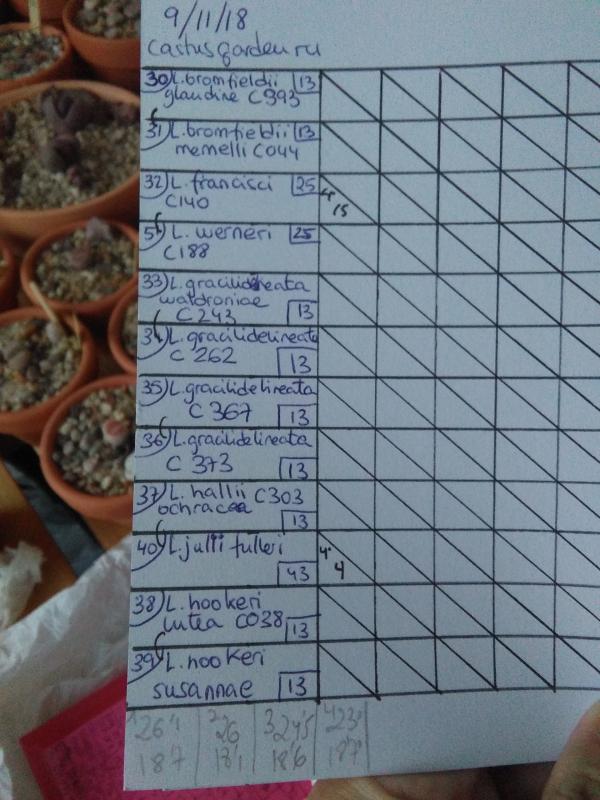 9/11/18
Castusgarden ru
30) L. bromfieldii 13
glaudine C393
31) L. bromfieldii 13
memelli C044
32) L. francisci 25
C140
15
5) L. werneri 25
C188
33) L. gracilidelineata
waldroniae
C243 13
34) L. gracilidelineata
C 262 13
35) L. gracilidelineata
C 367 13
36) L. gracilidelineata
C 373 13
37) L. hallii C303
ochracea 13
40) L. julii fulleri
4
43
38) L. hookeri
lutea C038 13
39) L. hookeri
susannae 13
26 3
187